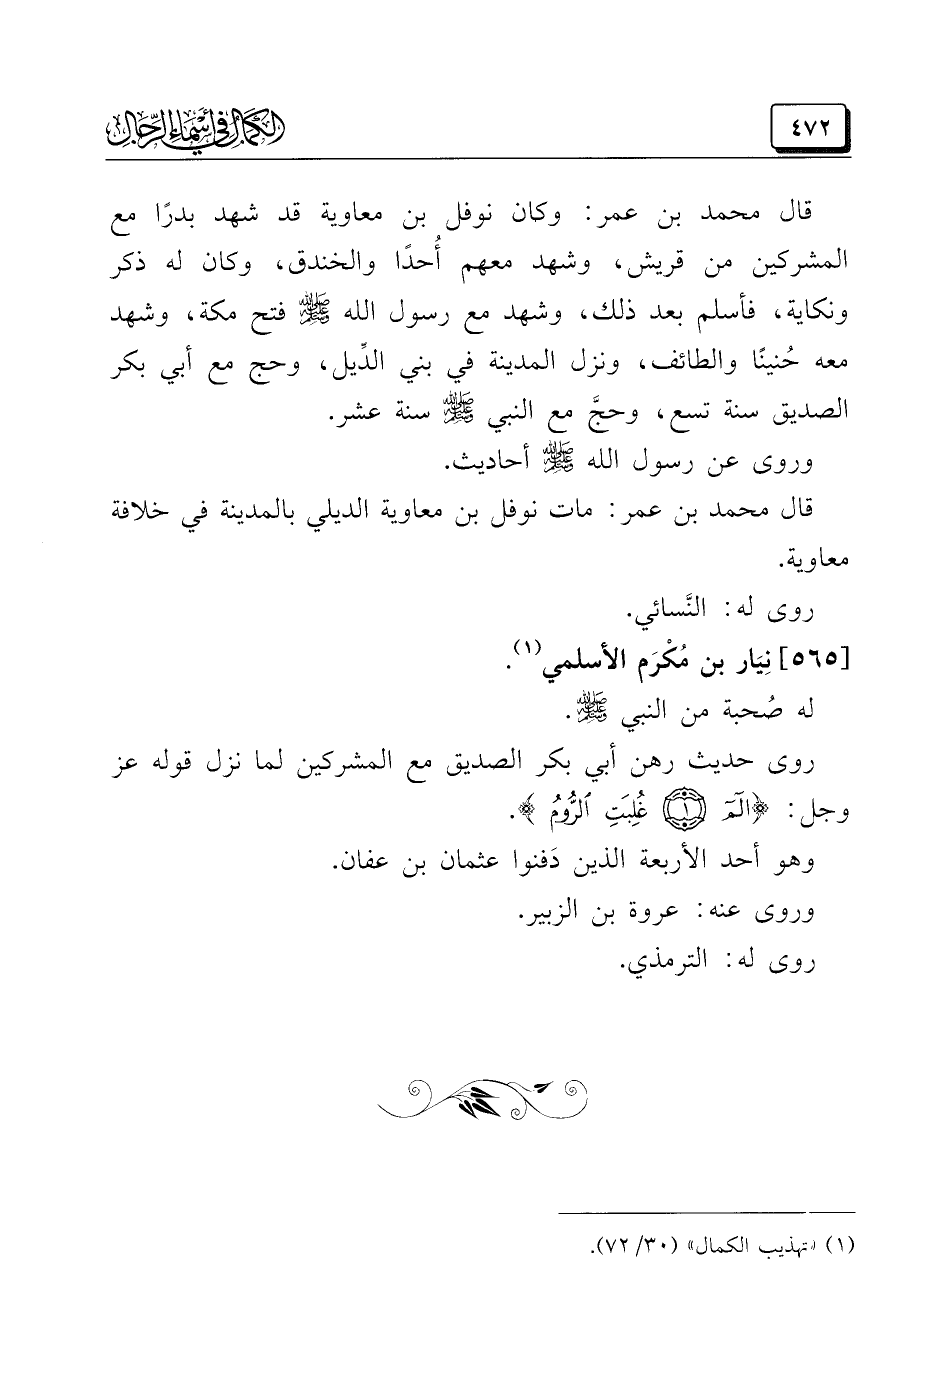 ٤٧٢
الكمال في أسماء الرجال
قال محمد بن عمر: وكان نوفل بن معاوية قد شهد بدرًا مع
المشركين من قريش، وشهد معهم أُحدًا والخندق، وكان له ذكر
ونكاية، فأسلم بعد ذلك، وشهد مع رسول الله ﷺ فتح مكة، وشهد
معه حُنينًا والطائف، ونزل المدينة في بني الدِّيل، وحج مع أبي بكر
الصديق سنة تسع، وحجَّ مع النبي ﷺ سنة عشر.
وروى عن رسول الله ﷺ أحاديث.
قال محمد بن عمر: مات نوفل بن معاوية الديلي بالمدينة في خلافة
معاوية.
روى له: النَّسائي.
[٥٦٥] نِيَار بن مُكْرَم الأسلمي(١).
له صُحبة من النبي ﷺ.
روى حديث رهن أبي بكر الصديق مع المشركين لما نزل قوله عز
وجل: ﴿الٓمٓ ۝١ غُلِبَتِ ٱلرُّومُ﴾.
وهو أحد الأربعة الذين دَفنوا عثمان بن عفان.
وروى عنه: عروة بن الزبير.
روى له: الترمذي.
(١) «تهذيب الكمال» (٣٠/ ٧٢).